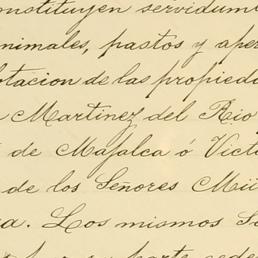 onstituyen servidum
nimales, pastos y aper
otacion de las propieda
Martinez del Rio
de Mafalca ó Victo
de los Señores Mü
a. Los mismos Se